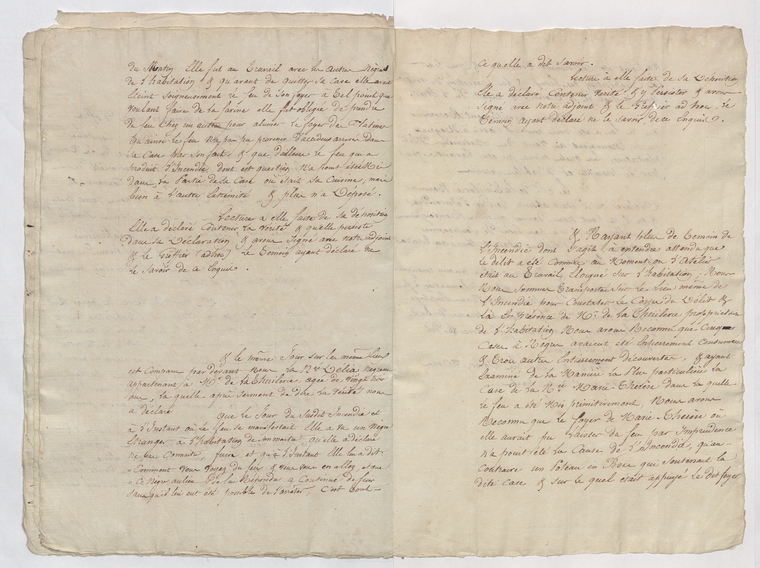 du Matin Elle fut au travail avec les autres Nègres
de l'habitation & qu'avant de quitter sa Case elle avait
éteint soigneusement le feu de son foyer à tel point que
voulant faire de la farine elle fut obligée de prendre
du feu chez un autre pour alumer le foyer de
ainsi le feu n'a pas pu provenir d'accident arrivé dans
sa Case par son fait, & que d'ailleurs le feu qui a
produit l'Incendie dont est question n'a point été Mis
dans la Partie de la Case où était sa Cuisine, mais
bien à l'autre Extrémité & plus n'a Déposé.
Lecture a elle faite de sa déposition
Elle a déclaré Contenir la Vérité & quelle persiste
dans sa Déclaration, & avons Signé avec notre adjoint
& le Greffier le Temoin ayant déclaré ne
le savoir de ce Enquis.
& le même Jour sur les mêmes lieux
est Comparu par devant Nous la Nsse Delia négresse
appartenant à Mr de la Thuilerie, agée de Vingt
ans, la quelle après serment de dire la Vérité nous
a déclaré
que le Jour du Susdit Incendie et
à l'Instant où le feu se manifestait Elle a vu un Negre
Etranger à l'habitation qu'elle a déclaré
ne pas Connaître, fuire et que l'Instant Elle lui a dit:
" Comment vous voyez du feu & vous vous en allez, & que
" Ce Negre au lieu de la Répondre a Continué de fuir
sans qu'il lui eut été possible de l'arrêter, C'est tout
Ce quelle a dit savoir.
Lecture à elle faite de sa Déposition
Elle a déclaré Contenir Vérité & y Persister & avons
Signé avec notre adjoint & le Greffier ad hoc, le
Temoin ayant déclaré ne le savoir de ce Enquis.
& N'ayant plus de Temoin de
l'Incendie dont s'agit à entendre attendu que
le délit a été Commis au Moment où l'Atelier
était au Travail, éloigné sur l'habitation, Nous
Nous sommes Transportés sur le lieu même de
l'Incendie pour Constater le Corps du Délit &
En la Presence de Mr. de la Thuilerie propriétaire
de l'habitation Nous avons Reconnu que Cinq
Cases à Nègres avaient été Entièrement Consumées
& Trois autres Entièrement découvertes, & ayant
Examiné de la Manière la Plus particulière la
Case de la Nsse Marie Thérèse dans la quelle
le feu a été Mis primitivement Nous avons
Reconnu que le foyer de Marie-Thérèse où
elle aurait pu laisser du feu par Imprudence
n'a point été la Cause de l'Incendie, qu'au
Contraire un Poteau en Bois qui soutenait la
dite Case & sur le quel était appuyé le dit foyer